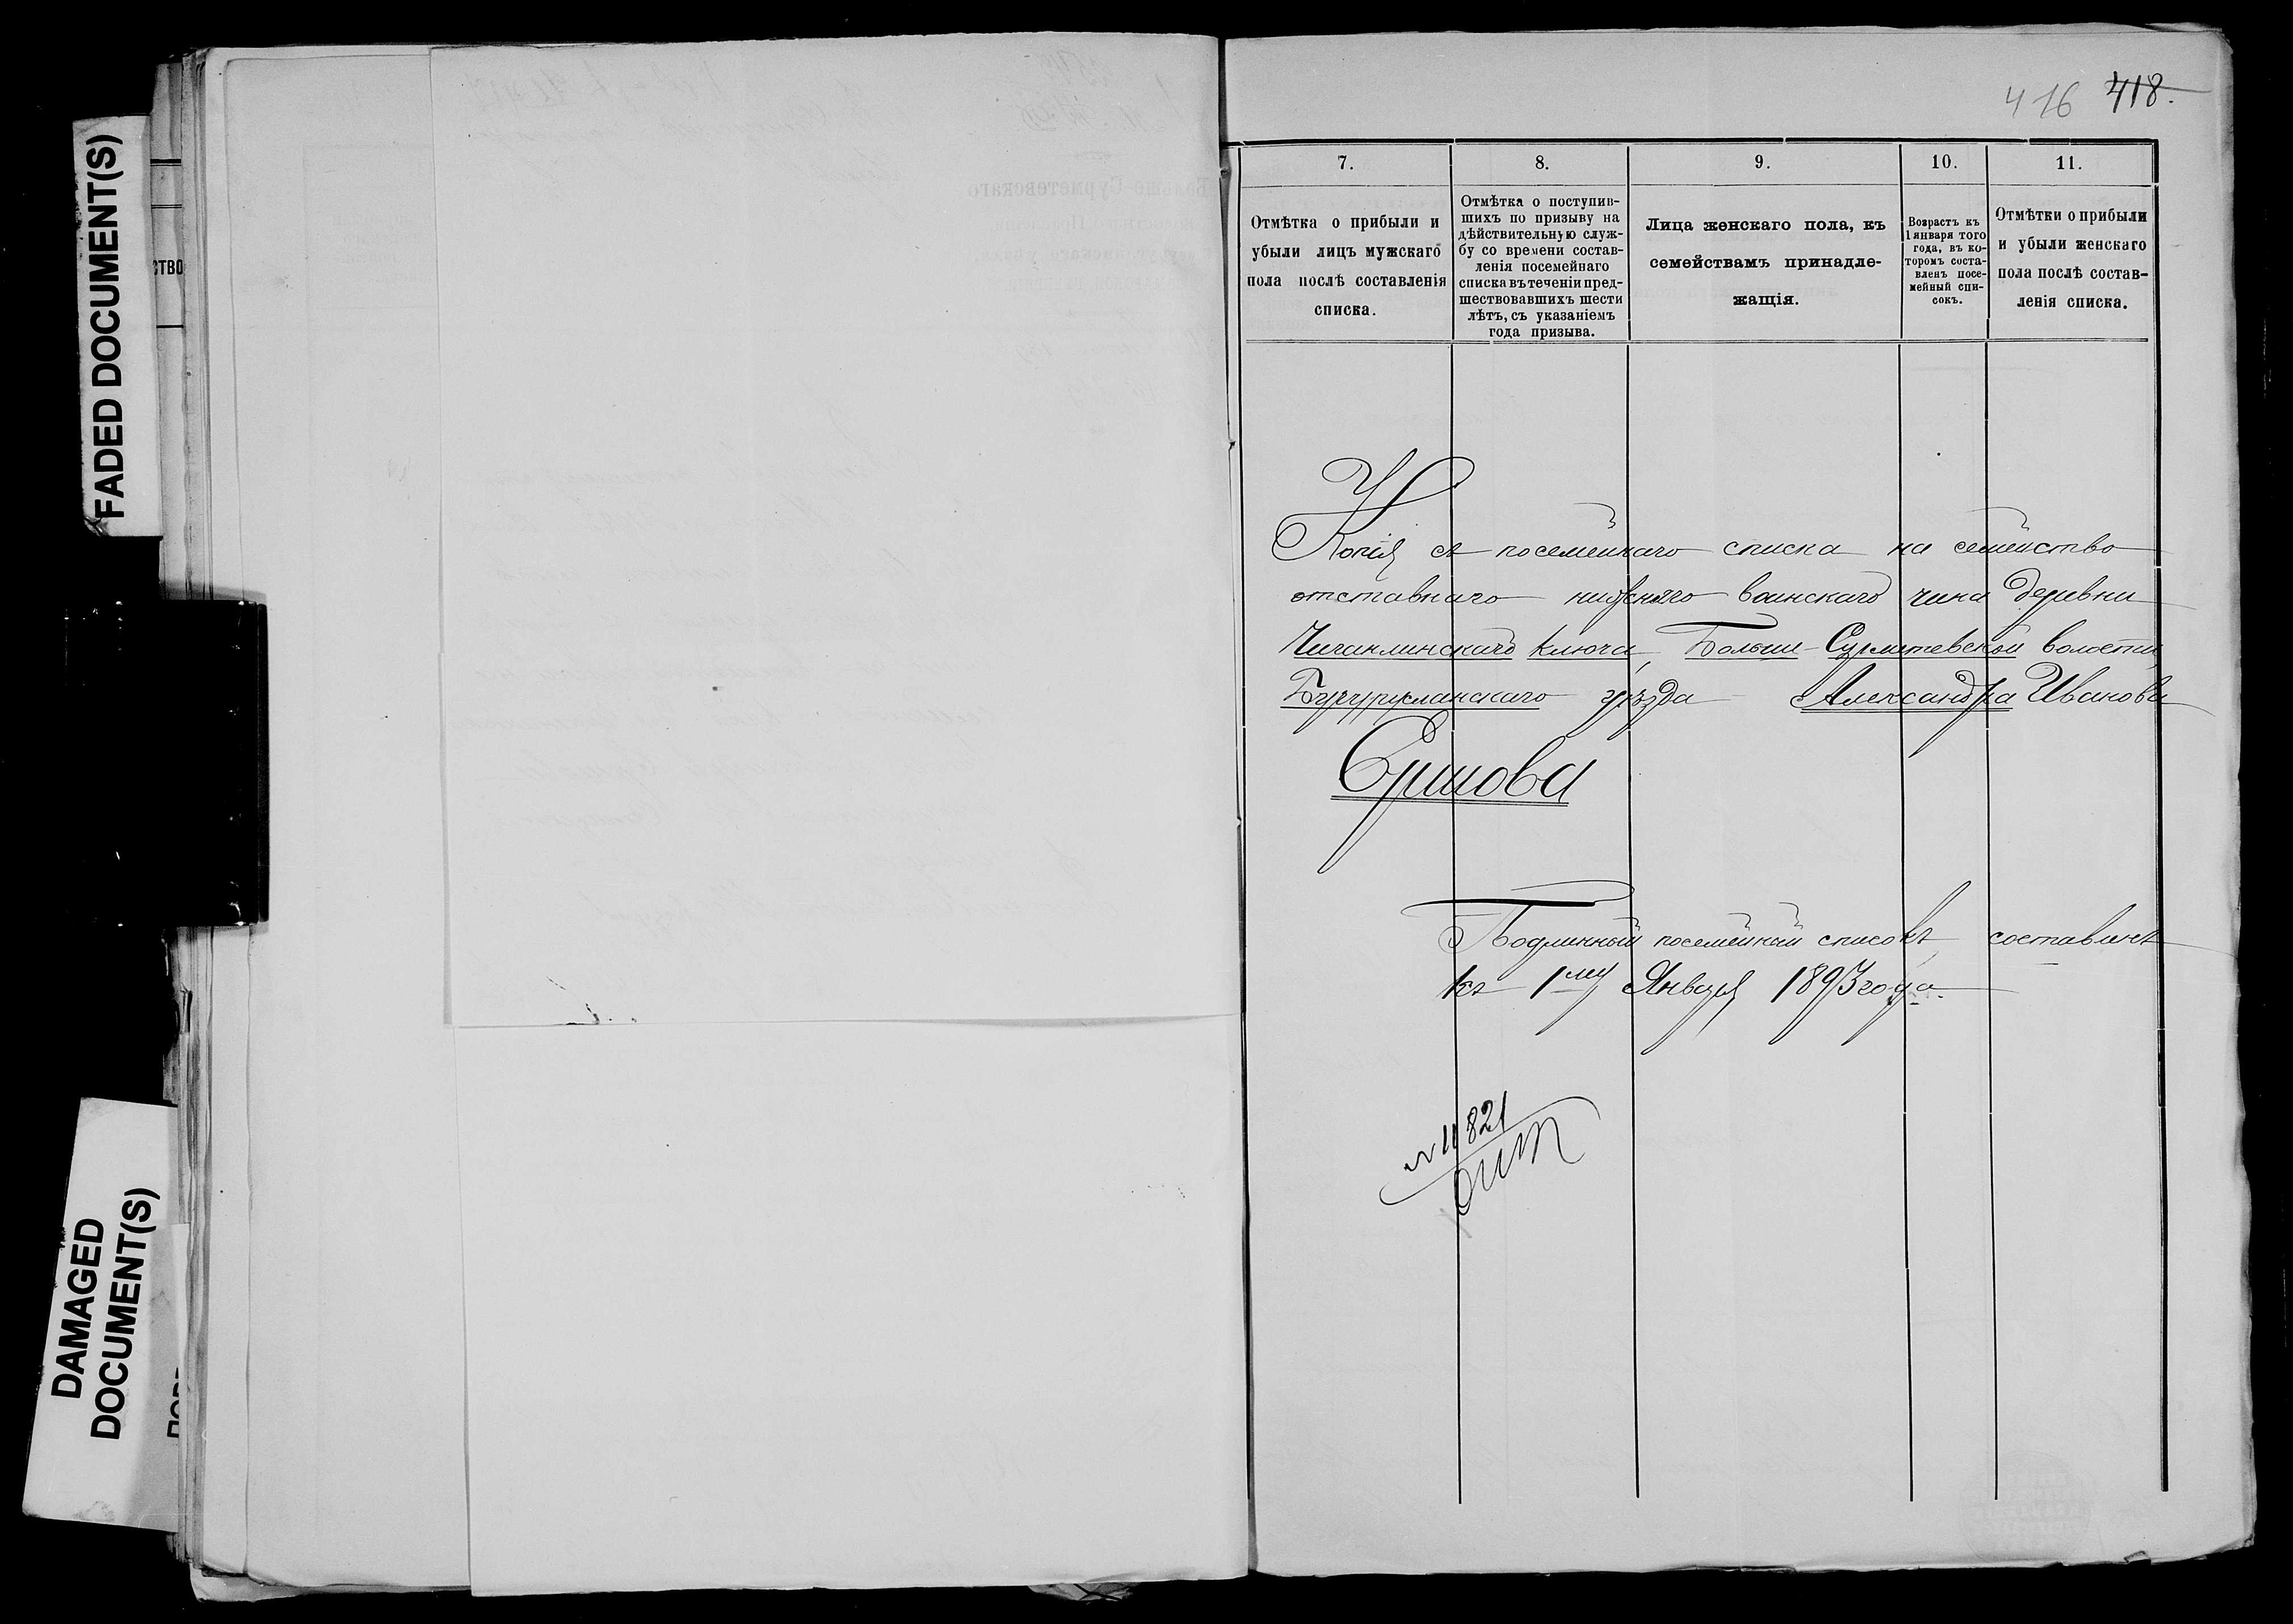 FADED DOCUMENT(S)
DAMAGED
DOCUMENT(S)
СТВО
416 418.
7.
Отмѣтка о прибыли и
убыли лицъ мужскаго
пола послѣ составленія
списка.
8.
Отмѣтка о поступив-
шихъ по призыву на
дѣйствительную служ-
бу со времени состав-
ленія посемейнаго
списка въ теченіи пред-
шествовавшихъ шести
лѣтъ, съ указаніемъ
года призыва.
9.
Лица женскаго пола, къ
семействамъ принадле-
жащія.
10.
Возрастъ къ
1 января того
года, въ ко-
торомъ соста-
вленъ посе-
мейный спи-
сокъ.
11.
Отмѣтки о прибыли
и убыли женскаго
пола послѣ состав-
ленія списка.
Копія съ посемейнаго списка на семейство
отставнаго нижняго воинскаго чина деревни
Чиганлинскаго Ключа, Больше-Сурметевской волости,
Бугурусланскаго уѣзда Александра Иванова
Ершова
Подлинный посемейный списокъ составленъ
къ 1му Января 1893 года.
№ 11821